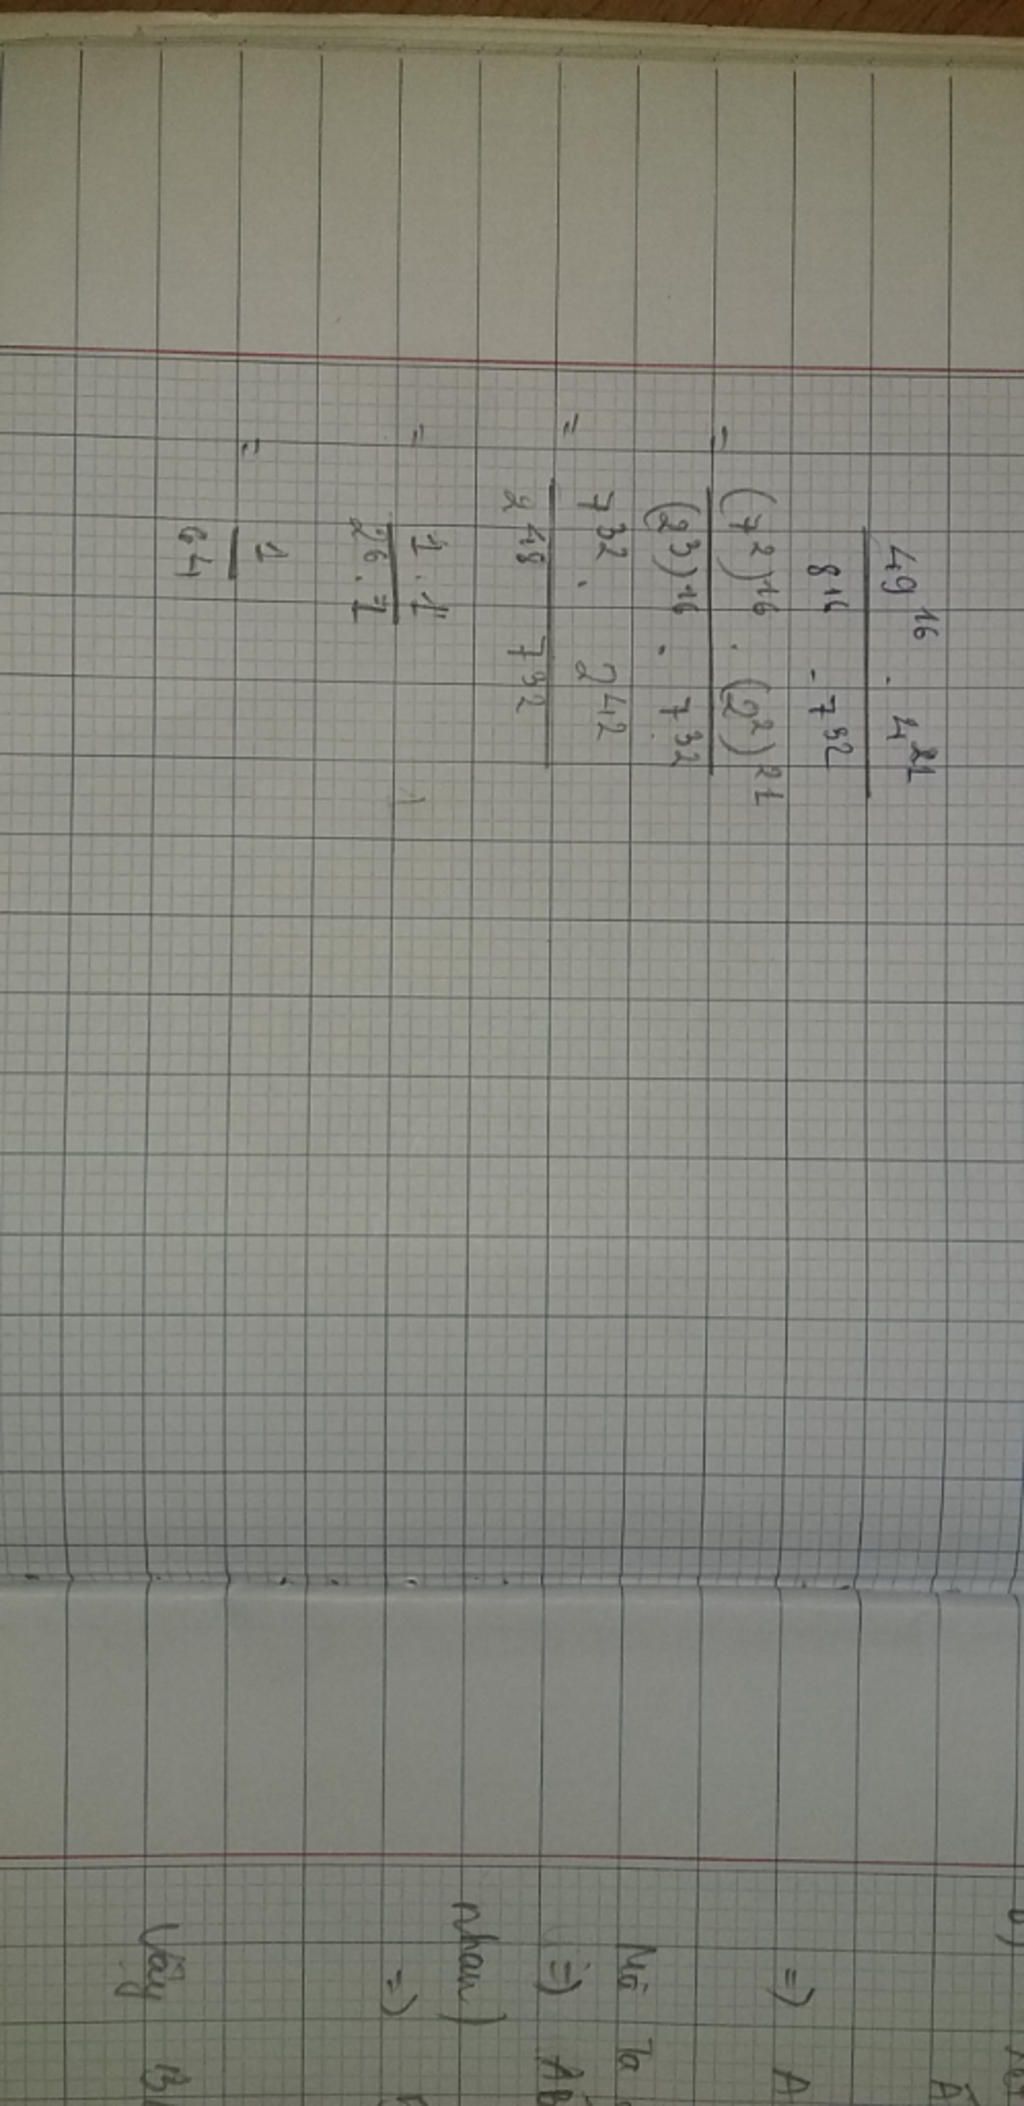 49^16 . 4^21
8^16 . 7^32
= (7^2)^16 . (2^2)^21
(2^3)^16 . 7^32
= 7^32 . 2^42
2^48 7^32
= 1 . 1
2^6 . 1
= 1
64
b)
A
=) A
Mà Ta
=) AB
nhau)
=)
Vậy B